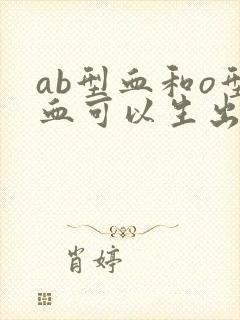 ab型血和o型
血可以生出
肖婷